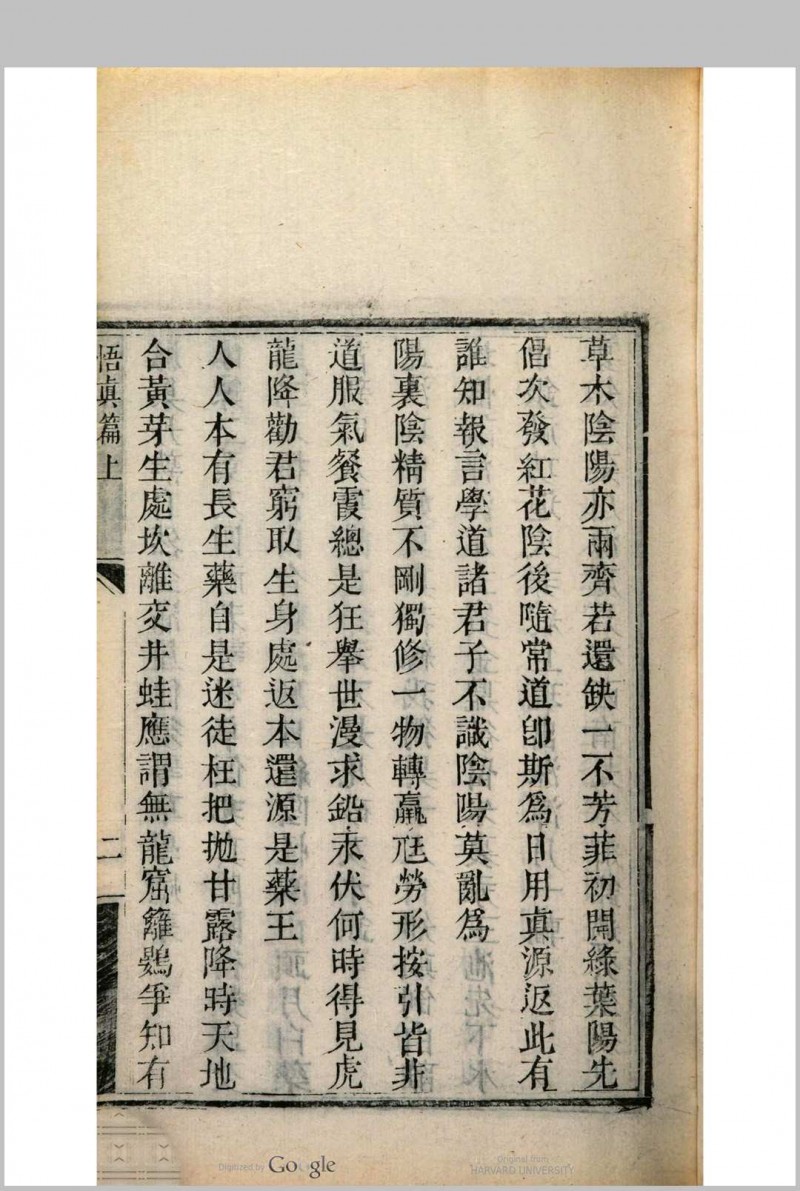 草木陰陽亦兩齊若還缺一不芳菲初開綠葉陽先
倡次發紅花陰後隨常道卽斯爲日用真源返此有
誰知報言學道諸君子不識陰陽莫亂爲
陽裏陰精質不剛獨修一物轉羸尫勞形按引皆非
道服氣餐霞總是狂舉世漫求鉛汞伏何時得見虎
龍降勸君窮取生身處返本還源是藥王
人人本有長生藥自是迷徒枉把拋甘露降時天地
合黃芽生處坎離交井蛙應謂無龍窟籬鷃爭知有
悟真篇上
二
Digitized by Google
Original from
HARVARD UNIVERSITY